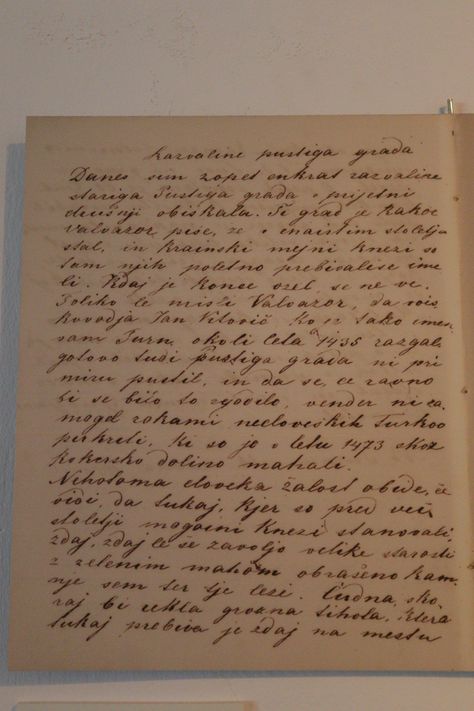 Razvaline pustiga grada
Danes sim zopet enkrat razvaline
stariga Pustiga grada v prijetni
družnji obiskala. Ti grad je kakor
Valvazor piše, že v enaistim stoletju
stal, in krainski mejni knezi so
tam njih poletno prebivališe ime
li. Kdaj je konec vzel, se ne ve.
Toliko le misli Valvazor, da vois
kovodja Jan Vitovič ko je tako imen
van Turn, okoli leta 1435 razgal,
gotovo tudi Pustiga grada ni pri
miru pustil, in da se, če ravno
bi se bilo to zgodilo, vender ni
mogel rokami nečloveških Turkov
ki so jo v letu 1473 skoz
kokersko dolino mahali.
Nehotoma človeka žalost obide, če
vidi, da tukaj, kjer so pred več
stoletji mogočni knezi stanovali,
zdaj, zdaj le še zavoljo velike starosti
z zelenim mahom obrašeno kam
nje sem ter tje leži. Čudna, sko
raj bi rekla grozna tihota, ktera
tukaj prebiva je zdaj na mestu